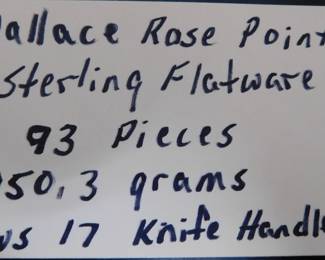 allace Rose Point
Sterling Flatware
93 Pieces
50.3 grams
us 17 Knife Handle